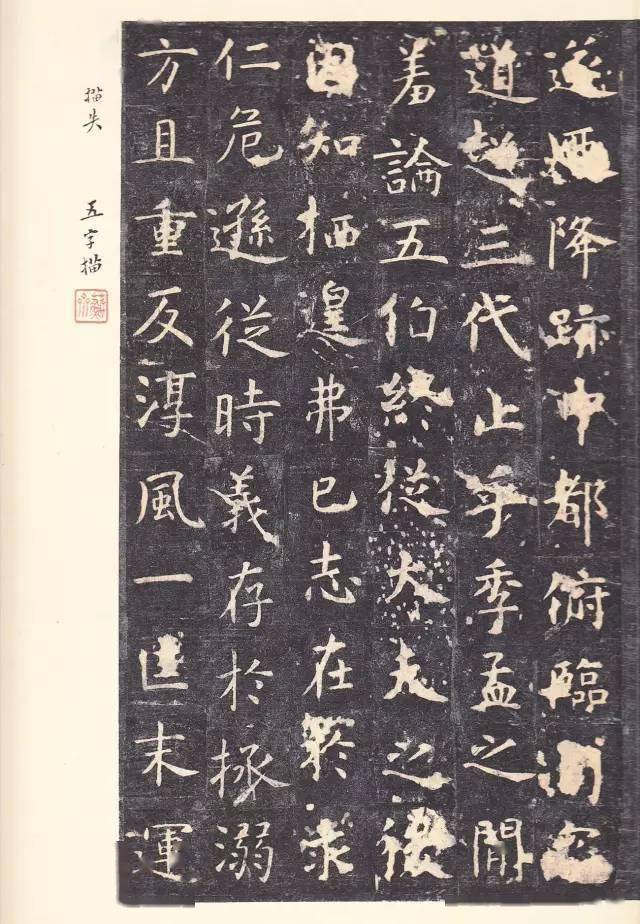 逶迤降跡中都俯臨司寇
道超三代止乎季孟之間
羞論五伯終從大夫之後
固知栖遑弗已志在於求
仁危遜從時義存於拯溺
方且重反淳風一匡末運
描失 五字描